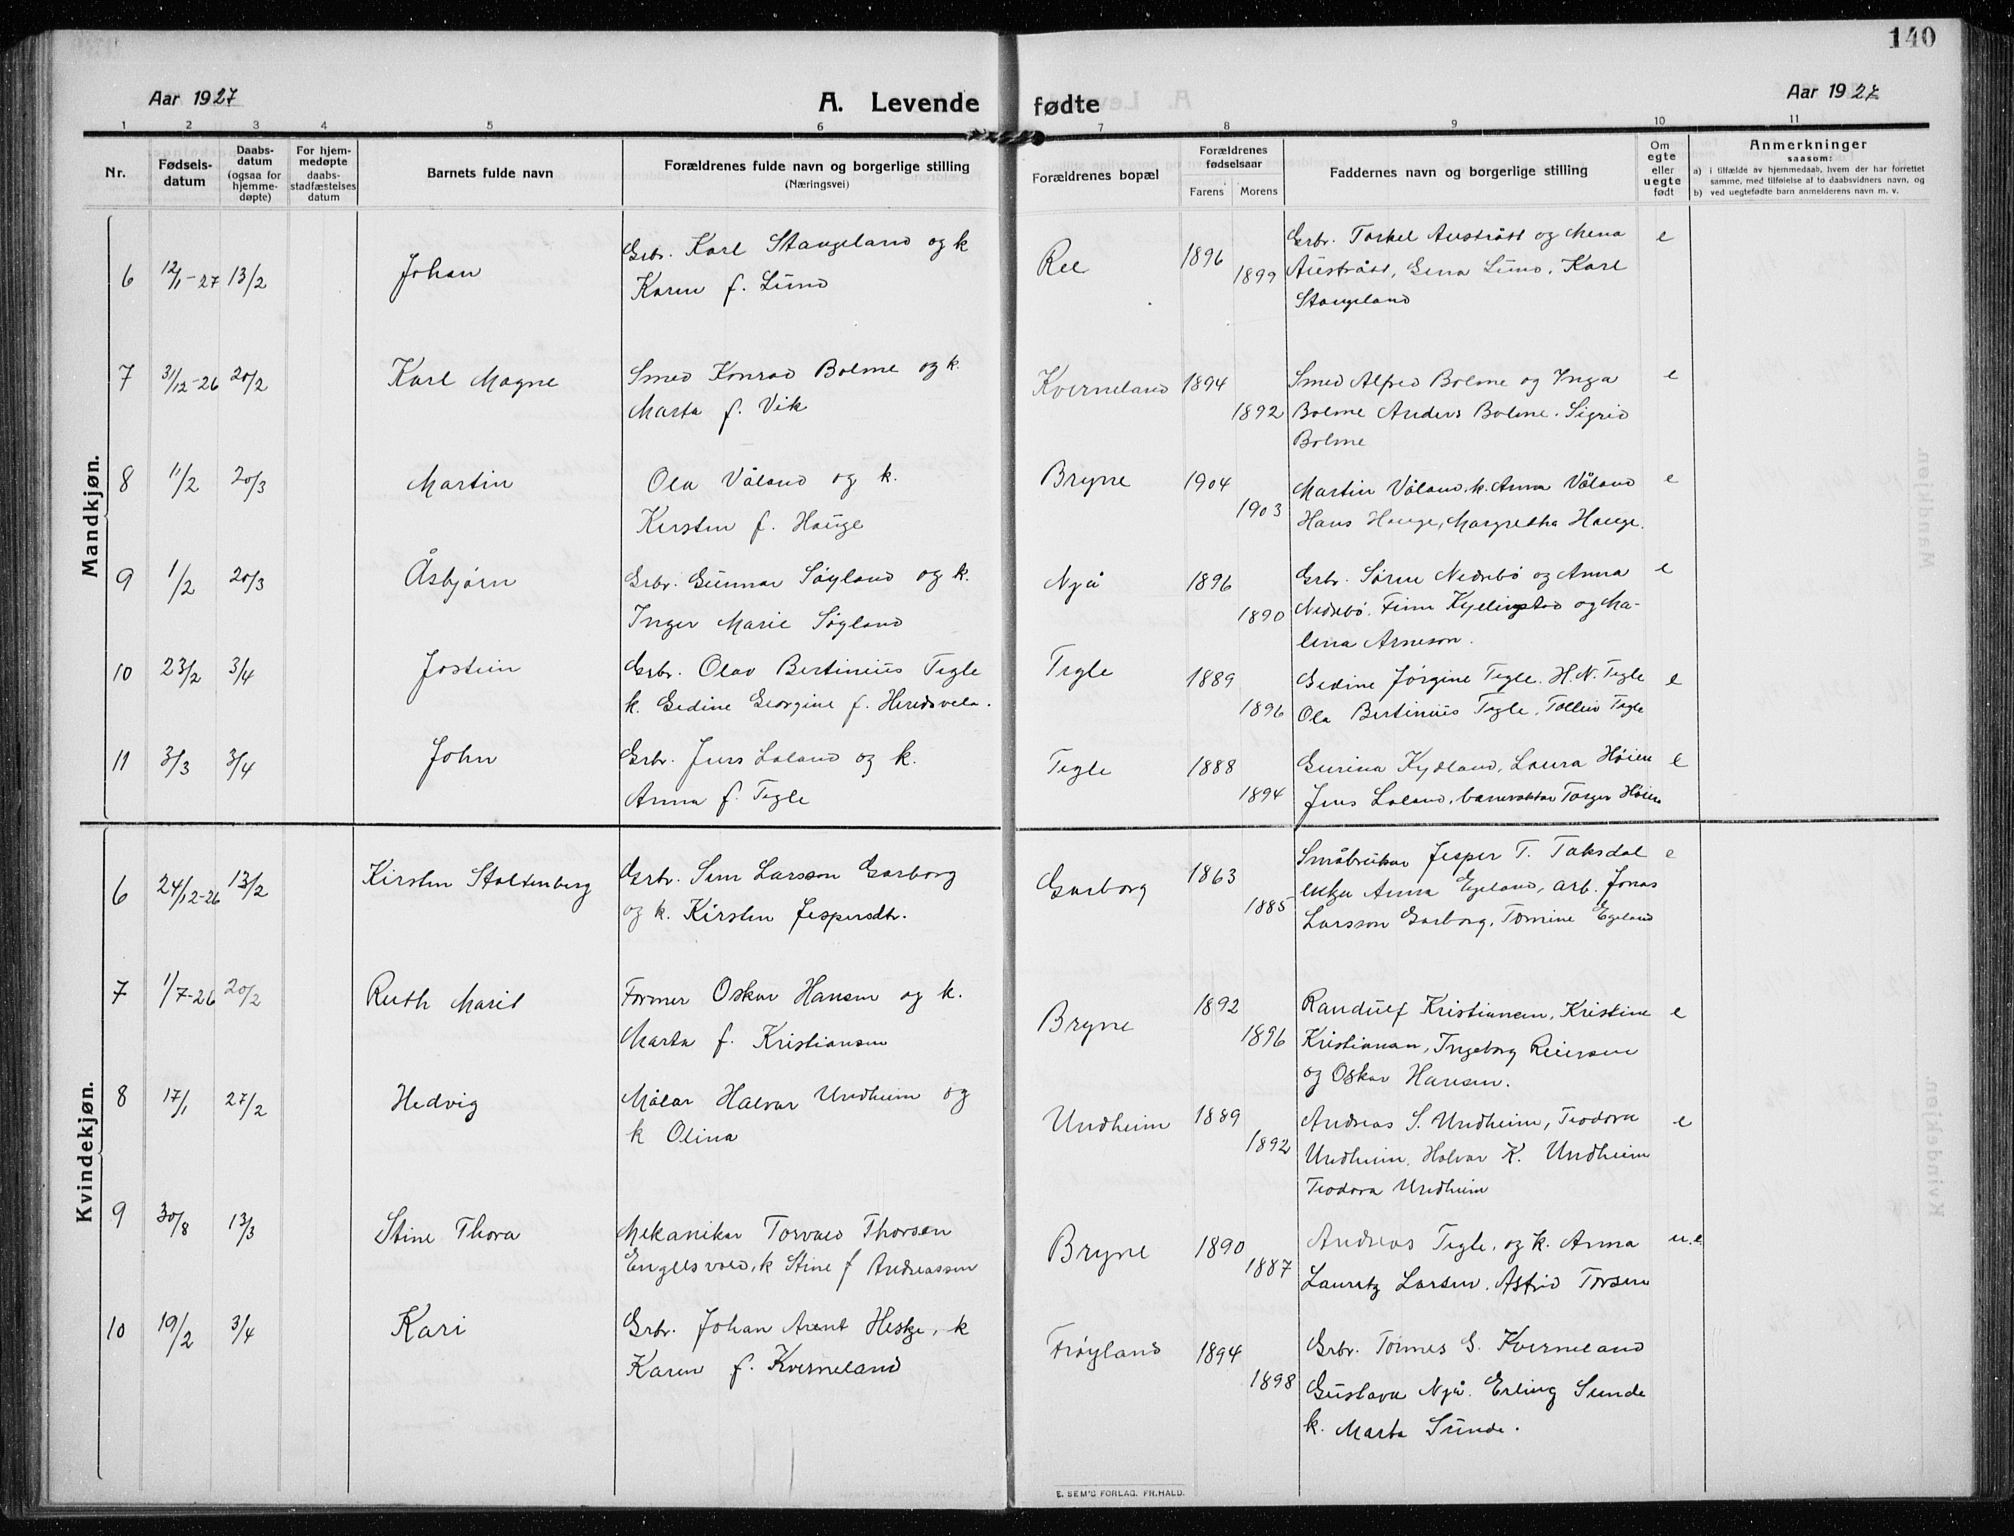 140
Aar 1927
A. Levende
fødte
Aar 1927
1 2 3 4 5 6 7 8 9 10 11
Nr.
Fødsels-
datum
Daabs-
datum
(ogsaa for
hjemme-
døpte)
For hjem-
medøpte
daabs-
stadfæstelses
datum
Barnets fulde navn
Forældrenes fulde navn og borgerlige stilling
(Næringsvei)
Forældrenes bopæl
Forældrenes
fødselsaar
Farens Morens
Faddernes navn og borgerlige stilling
Om
egte
eller
uegte
født
Anmerkninger
saasom:
a) i tilfælde av hjemmedaab, hvem der har forrettet
samme, med tilføielse af to daabsvidners navn, og
b) ved uegtefødte barn anmelderens navn m. v.
Mandkjøn.
6 12/1-27 13/2 Johan Grb. Karl Stangeland og k
Karen f. Lund
Ree 1896 1899 Grb. Torkel Austrått og Mena e
Austrått, Gina Lund, Karl
Stangeland
7 31/12-26 20/2 Karl Magne Smed Konrad Bolme og k.
Marta f. Vik
Kverneland 1894 1892 Smed Alfred Bolme og Inga e
Bolme Anders Bolme. Sigrid
Bolme
8 11/2 20/3 Martin Ola Våland og k.
Kirsten f. Hauge
Bryne 1904 1903 Martin Våland, k. Anna Våland e
Hans Hauge, Margretha Hauge.
9 1/2 20/3 Åsbjørn Grb. Gunnar Søyland og k.
Inger Marie Søyland
Njå 1896 1890 Grb. Søren Nedrebø og Anna e
Nedrebø. Finn Kyllingstad og Ma-
lena Arneson.
10 23/2 3/4 Jostein Grb. Olav Bertinius Tegle
k. Gedine Georgine f. Heredsvela.
Tegle 1889 1896 Gedine Jørgine Tegle. H. N. Tegle e
Ola Bertinius Tegle, Tolleiv Tegle
11 3/3 3/4 John Grb. Jens Loland og k.
Anna f. Tegle
Tegle 1888 1894 Gurina Kydland, Laura Høien e
Jens Loland, banevokter Torger Høien
Kvindekjøn.
6 24/12-26 13/2 Kirsten Stoltenberg Grb. Sem Larsson Garborg
og k. Kirsten Jespersdtr.
Garborg 1863 1885 Småbruker Jesper T. Taksdal e
enke Anna Egeland, arb. Jonas
Larsson Garborg, Tomine Egeland
7 1/7-26 20/2 Ruth Marit Former Oskar Hansen og k.
Marta f. Kristiansen
Bryne 1892 1896 Randulf Kristiansen, Kristine e
Kristiansen, Ingeborg Reiersen
og Oskar Hansen.
8 17/1 27/2 Hedvig Målar Halvar Undheim og
k Olina
Undheim 1889 1892 Andreas S. Undheim, Teodora e
Undheim, Halvar K. Undheim
Teodora Undheim
9 30/8 13/3 Stine Thora Mekaniker Torvald Thorsen
Engelsvold, k Stine f Andreassen
Bryne 1890 1887 Andreas Tegle, og k. Anna u.e.
Lauritz Larsen, Astrid Torsen
10 19/2 3/4 Kari Grb. Johan Arent Heskje, k
Karen f. Kverneland
Frøyland 1894 1898 Grb. Tønnes G. Kverneland
Gustava Njå. Erling Sunde
k. Marta Sunde.
E. SEM'S FORLAG. FR.HALD.